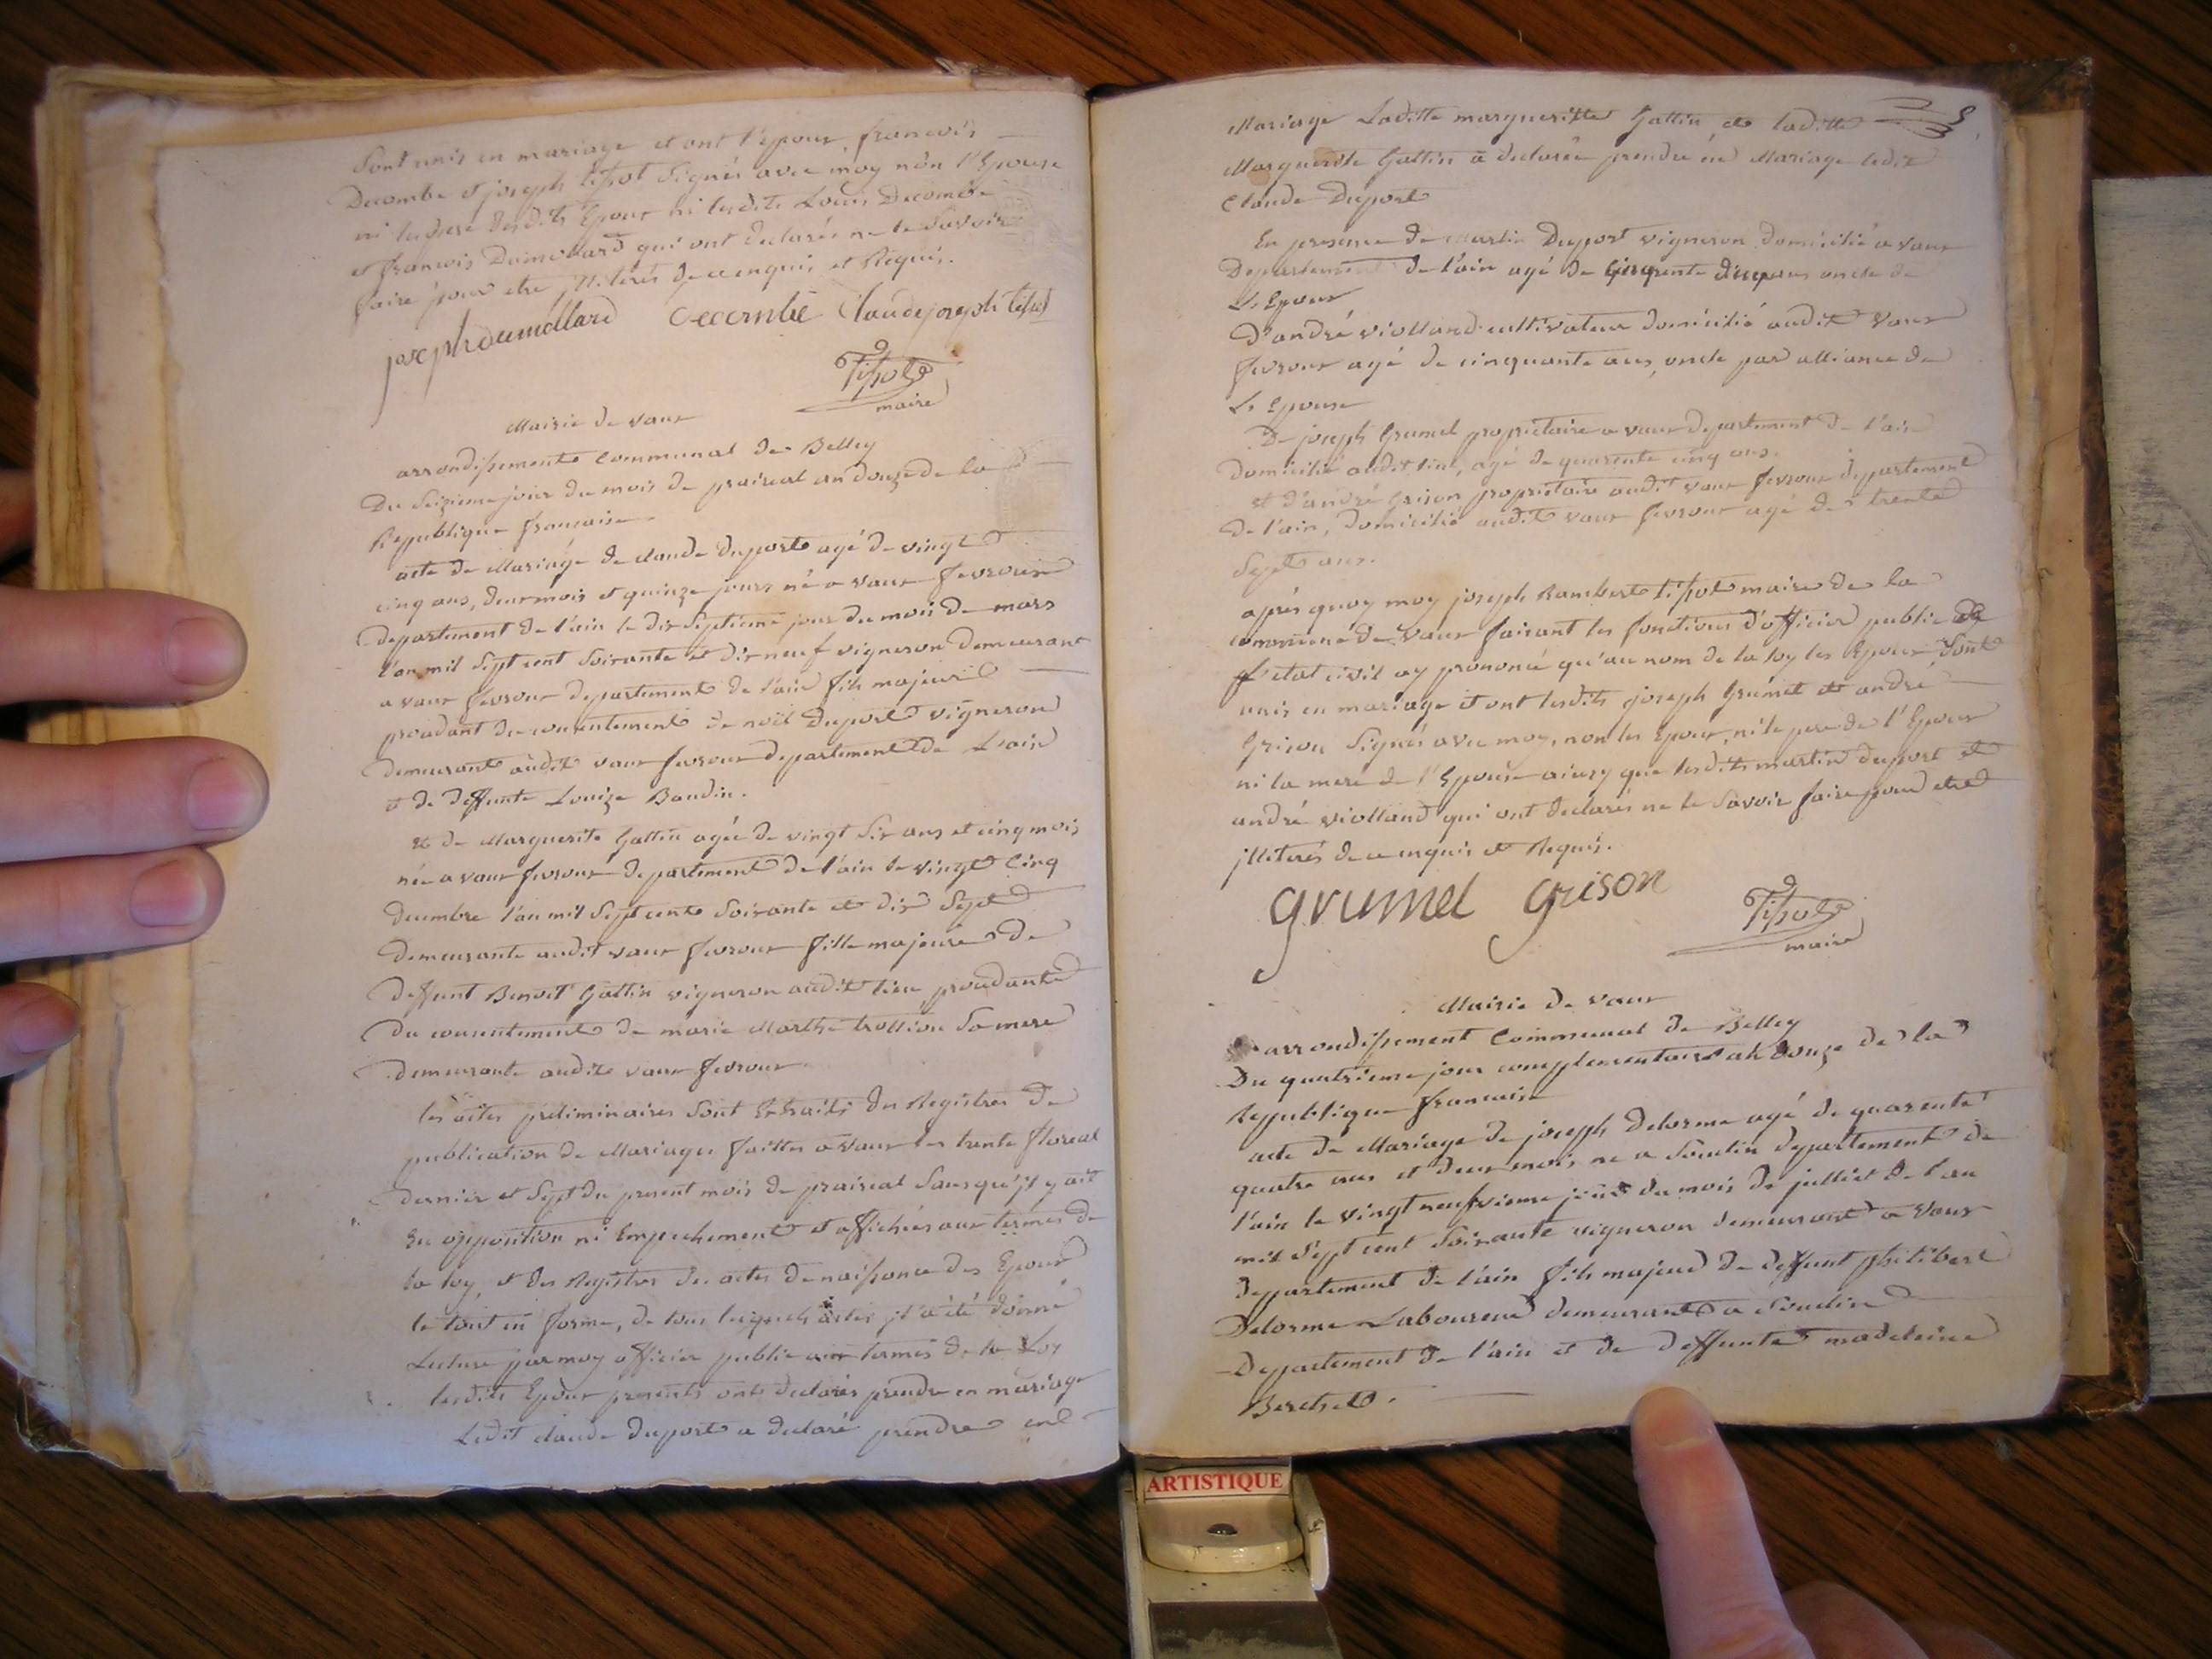 Sont unis en mariage et ont l'Epoux, francois
Decombe et joseph tissot signés avec moy non l'Epouse
ni les pere desdits Epoux ni lesdits Louis Decombe
et francois Dumollard qui ont declarés ne le savoir
faire pour etre jlliterés de ce enquis et Requis.
joseph dumollard Decombe Claude joseph tissot
Tissot
maire
Mairie de vaux
arrondissement Communal de Belley
Du Seizieme jour du mois de prairial an douze de la
Republique francaise
acte de Mariage de claude Duport agé de vingt
cinq ans, deux mois et quinze jours né a vaux fevroux
departement de l'ain le dix Septieme jour du mois de mars
l'an mil Sept cent Soixante et dix neuf vigneron demeurant
a vaux fevroux departement de l'ain fils majeur
procedant du consentement de noël Duport vigneron
demeurant audit vaux fevroux departement de L'ain
et de deffunte Louize Baudin.
et de Marguerite Gattin agée de vingt Six ans et cinq mois
née a vaux fevroux departement de l'ain le vingt Cinq
decembre l'an mil Sept cent Soixante et dix Sept
demeurante audit vaux fevroux fille majeure de
deffunt Benoit Gattin vigneron audit lieu procedante
du consentement de marie Marthe trollion Sa mere
demeurante audit vaux fevroux
les actes preliminaires sont Extraits des Registres de
publication de Mariages faittes a vaux les trente floreal
dernier et Sept du present mois de prairial Sans qu'jl y ait
Eu opposition ni Empechement et affichées aux termes de
la loy, et des Registres des actes de naissance des Epoux
le tout en forme, de tous lesquels actes jl a été donné
Lecture par moy officier public aux termes de la Loy
lesdits Epoux presents ont declarés prendre en mariage
Ledit claude Duport a declaré prendre en
Mariage Laditte margueritte Gattin, et laditte
Marguerite Gattin a declarée prendre en Mariage ledit
Claude Duport
En presence de Martin Duport vigneron domicilié a vaux
Departement de l'ain agé de Cinquente ans oncle de
L'Epoux
D'andré violland cultivateur domicilié audit vaux
fevroux agé de cinquante ans, oncle par alliance de
L'Epouse
De joseph Grumel proprietaire a vaux departement de l'ain
domicilié audit lieu, agé de quarente cinq ans.
et d'andré Grison proprietaire audit vaux fevroux departement
de l'ain, domicilié audit vaux fevroux agé de trente
Sept ans.
aprés quoy moy joseph Rambert tissot maire de la
commune de vaux faisant les fonctions d'officier public de
l'etat civil ay prononcé qu'au nom de la loy les Epoux Sont
unis en mariage et ont lesdits joseph Grumel et andré
Grison Signés avec moy, non les Epoux, ni le pere de l'Epoux
ni la mere de l'Epouse ainsy que lesdits martin duport et
andré violland qui ont declarés ne le Savoir faire pour etre
jlliterés de ce enquis et Requis.
grumel grison
Tissot
maire
Mairie de vaux
arrondissement Communal de Belley
Du quatrieme jour complementaire an douze de la
Republique francaise
acte de Mariage de joseph Delorme agé de quarente
quatre ans et deux mois, né a Soudin departement de
l'ain le vingt neufvieme jour du mois de julliet de l'an
mil Sept cent Soixante vigneron demeurant a vaux
departement de l'ain fils majeur de deffunt philibert
Delorme Laboureur demeurant a Soudin
Departement de l'ain et de deffunte madeleine
Berchet.
ARTISTIQUE